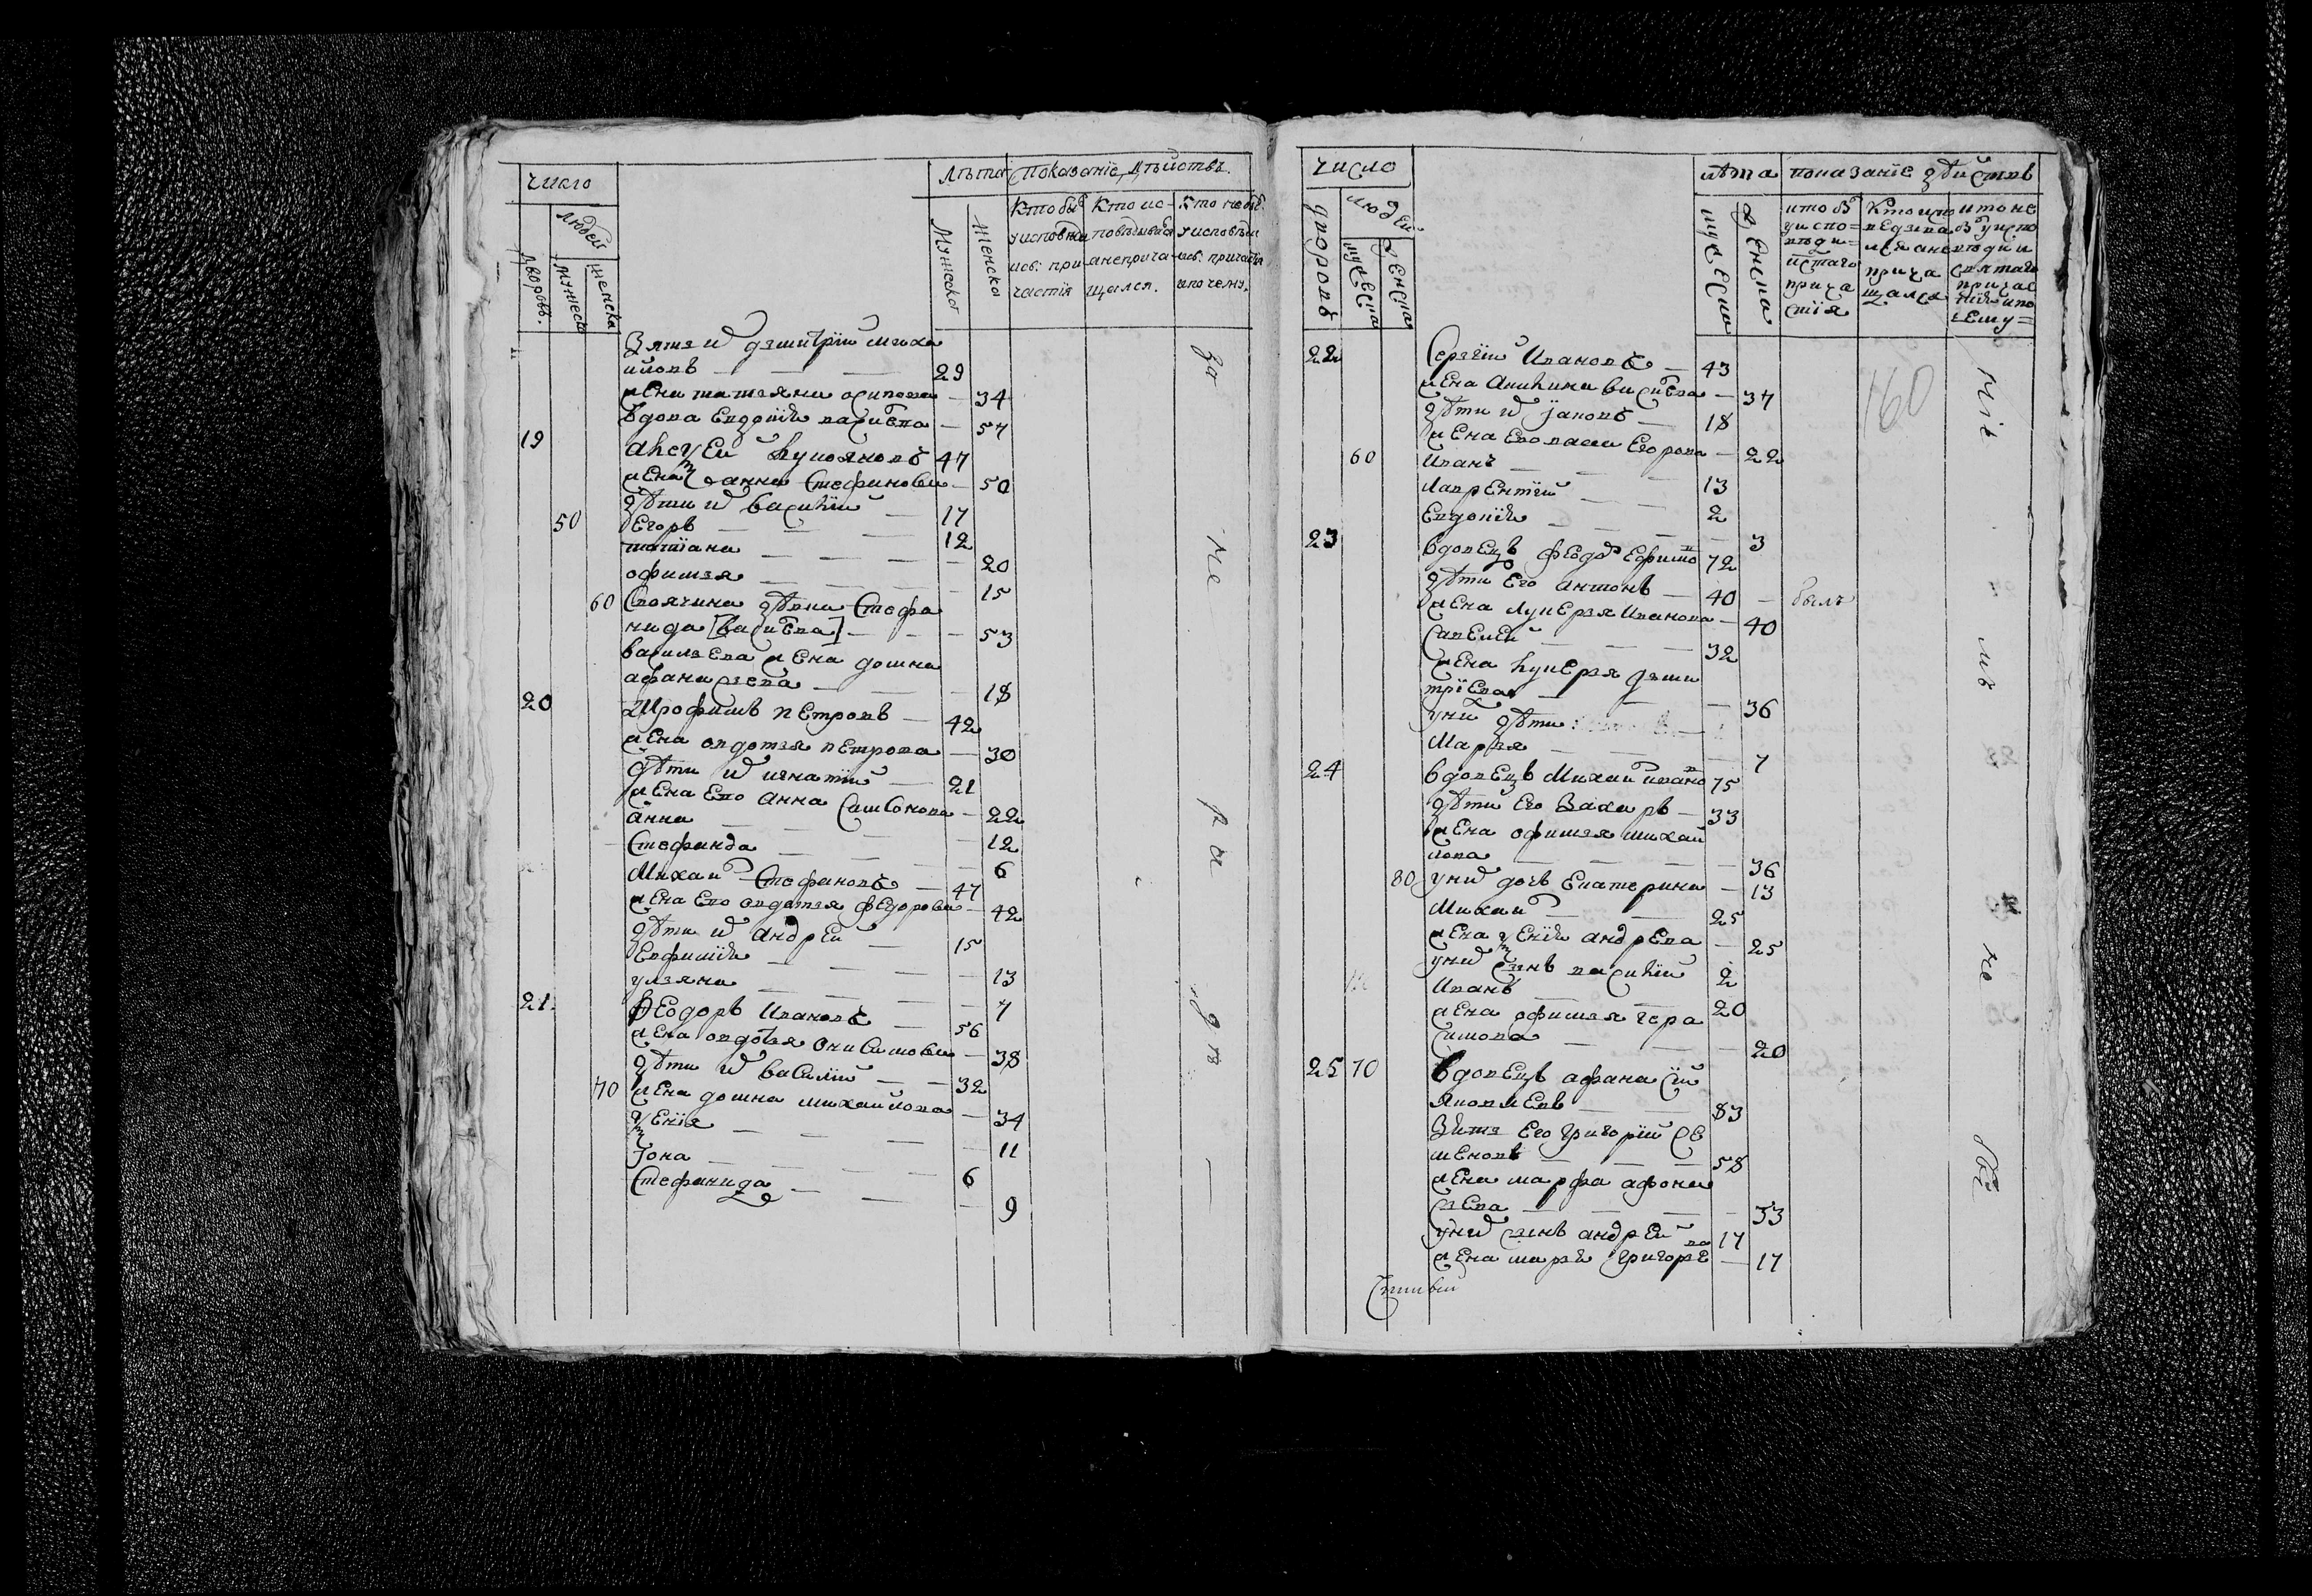 число
людей
дворовъ.
мужеска
женска
лѣта
Мужеска
женска
Показаніе дѣйствъ.
Кто былъ у исповѣди и св: причастія
Кто исповѣдывался а непричащался.
Кто не былъ у исповѣди и св: причастія и почему.
Зять их дэмитрїи михаи
иловъ — 29
жена татьяна осипова — 34
вдова Евдокия васильева — 57
19 Алеѯей лукояновъ 47
жена его анна Стефанова — 50
дѣти их василїй — 17
50 Егоръ — 12
татїана — 20
офимья — 15
60 Своячина дѣвка Стефа
нида [василева] — 53
васильева жена домна
афанасьева — 18
20 Трофимъ петровъ — 42
жена авдотья петрова — 30
дѣти их игнатїй — 21
жена Ево анна Самсонова — 22
анна — 12
Стефанда — 6
Михаил Стефановъ — 47
жена Ево овдотья федорова — 42
дѣти их андрей — 15
Евфимия — 13
ульяна — 7
21 Феодоръ Ивановъ — 56
жена овдотья Онисимова — 38
дѣти их василїй — 32
70 жена домна михаилова — 34
ѯенїя — 11
Iона — 6
Стефанида — 9
За
не
ра
дѣ
число
дворовъ
людей
мужеска
женска
лѣта
мужеска
женска
показанїе дѣйствъ
кто был у исповѣди и святаго причастїя
Кто исповедывался а не причащался
кто не был у исповѣди и святаго причастїя и почему
160
22 Сергїй Ивановъ — 43
жена Акилина василева — 37
дѣти их Iаковъ — 18
жена Ево Егорова — 22
60 Иванъ — 13
Лаврентїй — 2
Евдокия — 3
23 вдовецъ феодор Ефимов 72
дѣти Его антонъ — 40 — былъ
жена лукерья Иванова — 40
Савелей — 32
жена лукерья дэми
трїева — 36
у них дѣти
Марья — 7
24 вдовецъ Михаил иванов 75
дѣти Его Захаръ — 33
жена офимья михаи
лова — 36
80 у них дочь Екатерина — 13
Михаил — 25
жена ѯенїя андрева — 25
у них сынъ василїй 2
Иванъ — 20
жена офимья гера
симова — 20
25 70 вдовецъ афанасїй
Яковлевъ — 83
Зять Его Григорїй се
меновъ — 58
жена марфа афона
сьева — 53
у них сынъ андрей 17
жена марья Григорьева — 17
нїе
мъ
не